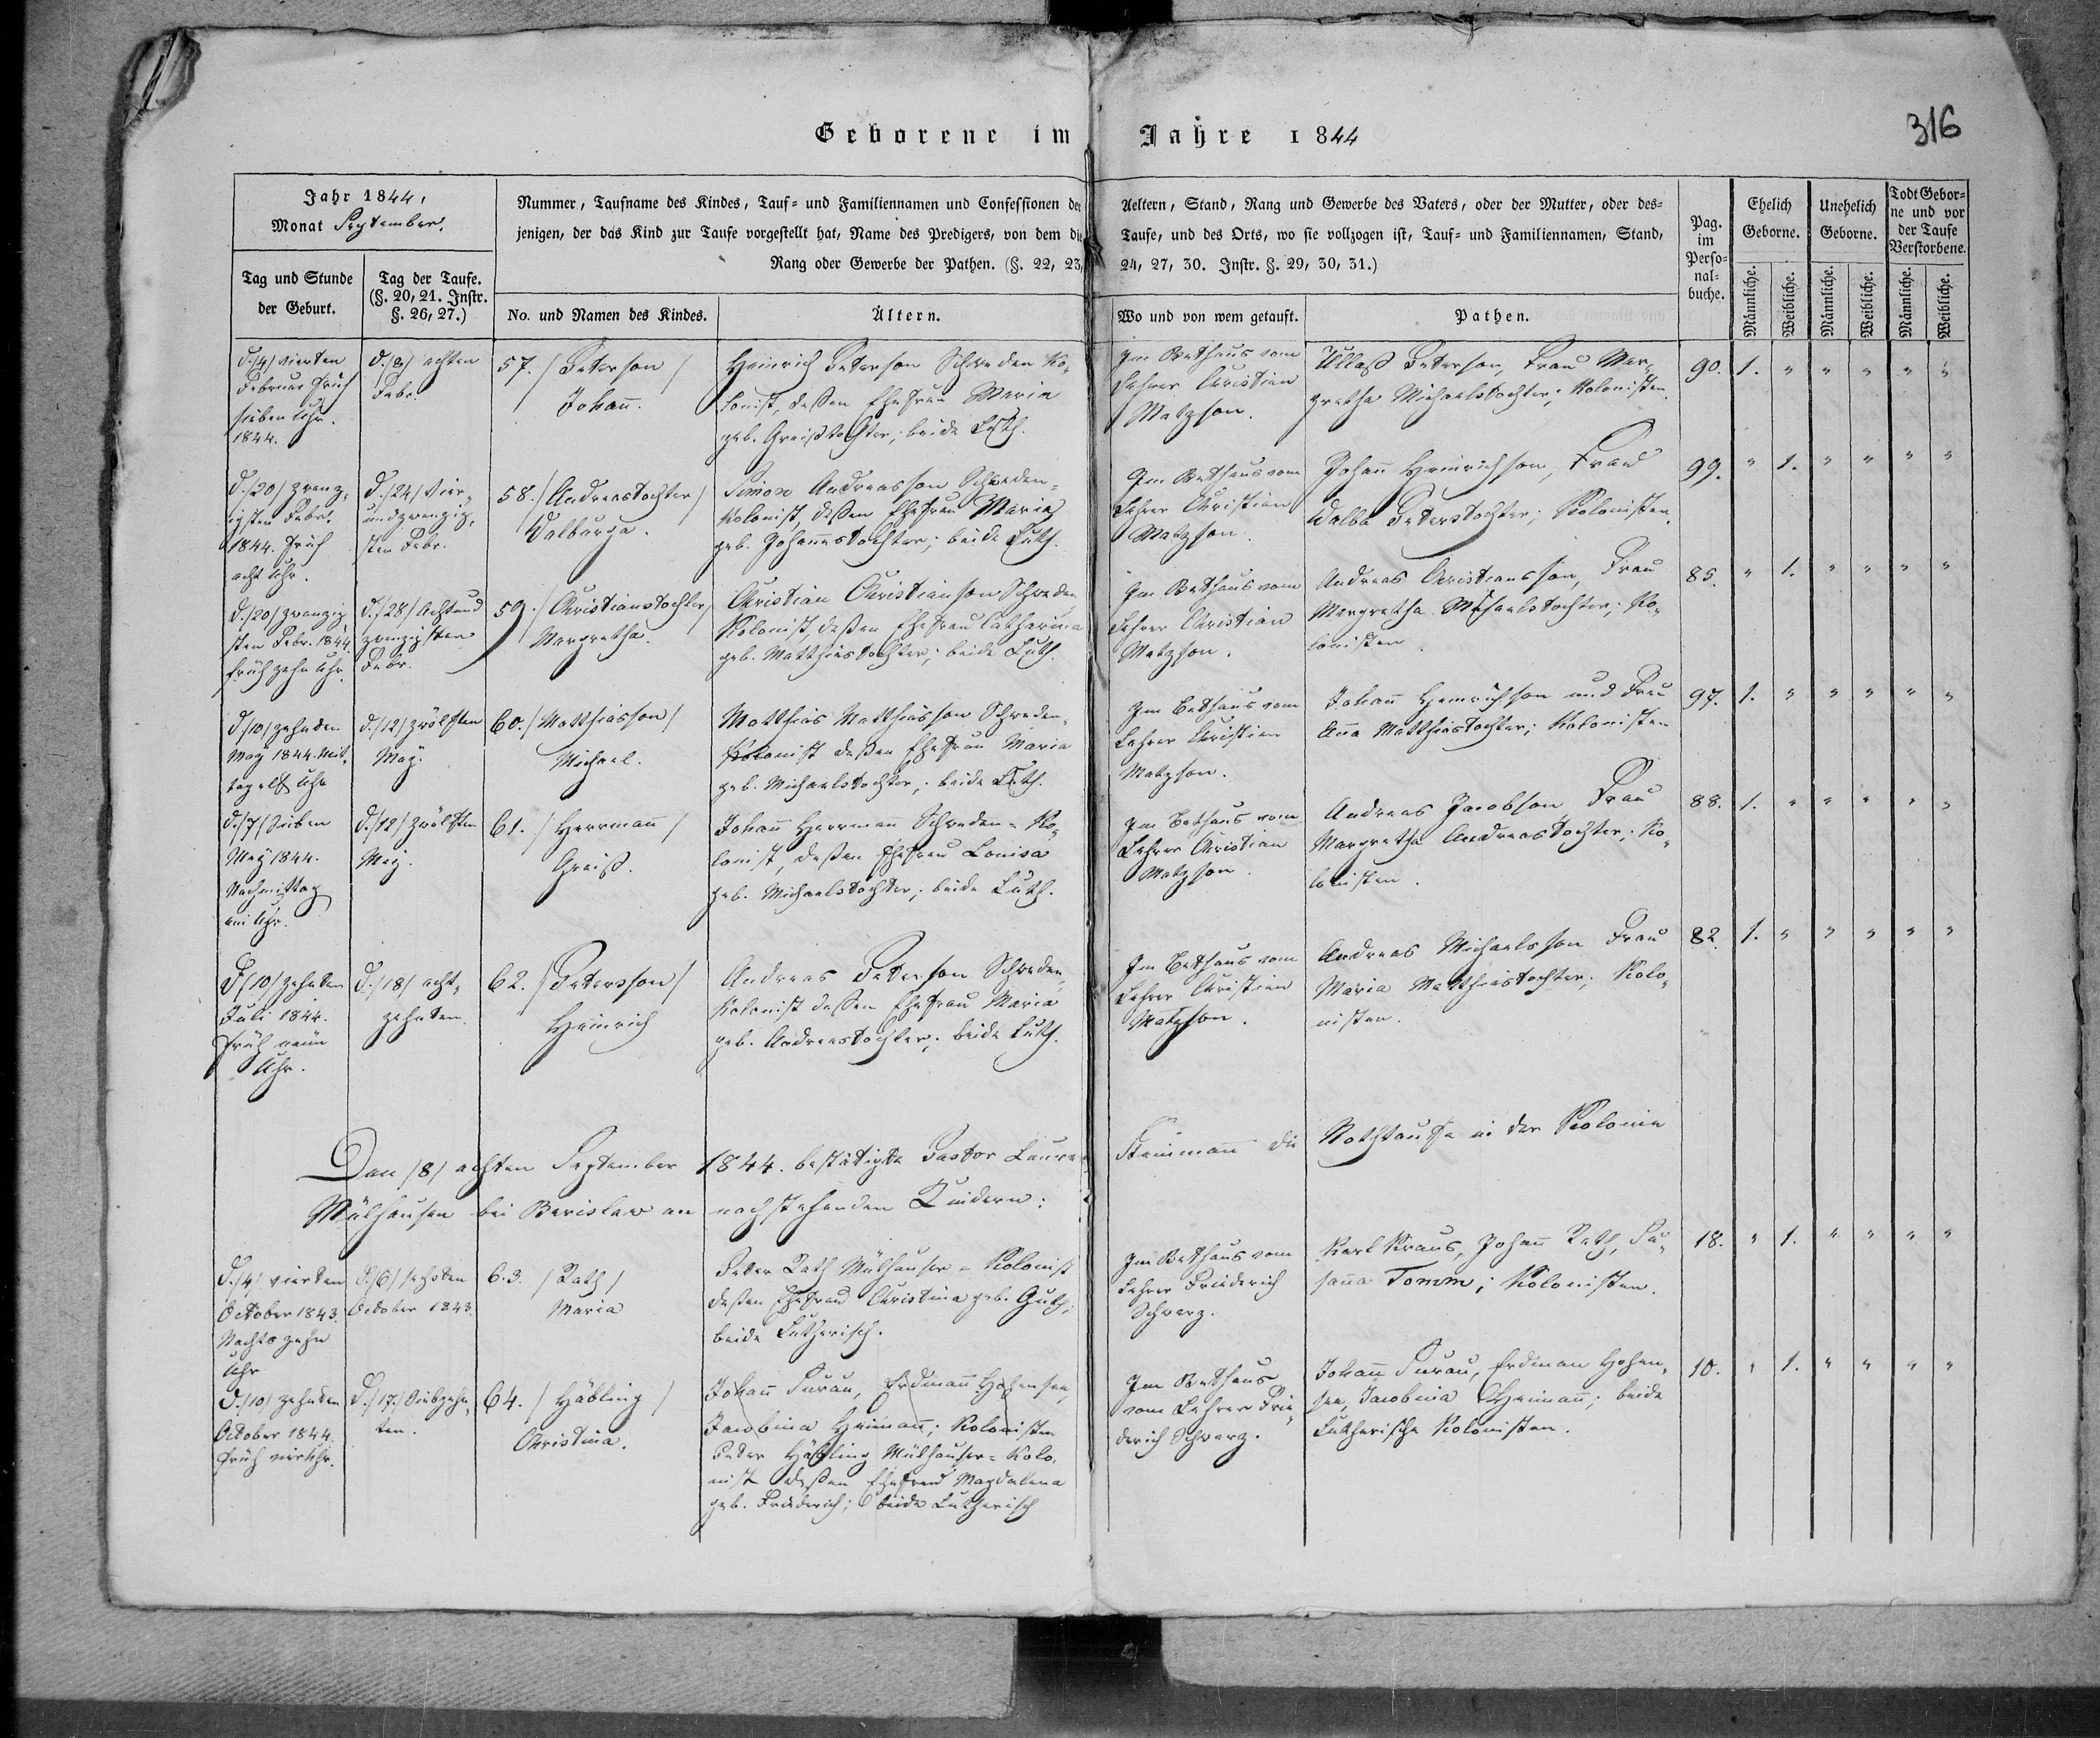 Geborene im Jahre 1844
316
Jahr 1844,
Monat September.
Tag und Stunde
der Geburt.
Tag der Taufe.
(§. 20, 21. Instr.
§. 26, 27.)
Nummer, Taufname des Kindes, Tauf= und Familiennamen und Confessionen der Aeltern, Stand, Rang und Gewerbe des Vaters, oder der Mutter, oder des=
jenigen, der das Kind zur Taufe vorgestellt hat, Name des Predigers, von dem die Taufe, und des Orts, wo sie vollzogen ist, Tauf= und Familiennamen, Stand,
Rang oder Gewerbe der Pathen. (§. 22, 23, 24, 27, 30. Instr. §. 29, 30, 31.)
No. und Namen des Kindes.
Ältern.
Wo und von wem getauft.
Pathen.
Pag.
im
Perso=
nal=
buche.
Ehelich
Geborne.
Unehelich
Geborne.
Todt Gebor=
ne und vor
der Taufe
Verstorbene.
Männliche.
Weibliche.
Männliche.
Weibliche.
Männliche.
Weibliche.
d. /4/ vierten
Februar früh
sieben Uhr.
1844.
d. /8/ achten
Febr.
57. /Peterson/
Johann.
Heinrich Peterson Schweden Ko=
lonist, deßen Ehefrau Maria
geb. Greißtochter; beide Luth.
Im Bethaus vom
Lehrer Christian
Matzson.
Ullaß Peterson, Frau Mar=
gretha Michaelstochter; Kolonisten.
90. 1. " " " " "
d. /20/ zwanz=
igsten Febr.
1844. früh
acht Uhr.
d. /24/ vier=
undzwanzig=
sten Febr.
58. /Andreastochter/
Walburga.
Simon Andreasson Schweden=
Kolonist, deßen Ehefrau Maria
geb. Johannestochter; beide Luth.
Im Bethaus vom
Lehrer Christian
Matzson.
Johann Heinrichson, Frau
Walba Peterstochter; Kolonisten.
99. " 1. " " " "
d. /20/ zwanzig
sten Febr. 1844.
früh zehn Uhr.
d. /28/ achtund
zwanzigsten
Febr.
59. /Christianstochter/
Margretha.
Christian Christianson Schweden
Kolonist, deßen Ehefrau Catharina
geb. Matthiastochter; beide Luth.
Im Bethaus vom
Lehrer Christian
Matzson.
Andreas Christiansson, Frau
Margretha Michaelstochter; Ko=
lonisten.
85. " 1. " " " "
d. /10/ zehnten
May 1844. Mit=
tag elf Uhr
d. /12/ zwölften
May.
60. /Matthiasson/
Michael.
Matthias Matthiasson Schweden=
Kolonist deßen Ehefrau Maria
geb. Michaelstochter; beide Luth.
Im Bethaus vom
Lehrer Christian
Matzson.
Johann Heinrichson und Frau
Anna Matthiastochter; Kolonisten
97. 1. " " " " "
d. /7/ Sieben
May 1844.
Nachmittag
ein Uhr.
d. /12/ zwölften
May.
61. /Herrmann/
Greiß.
Johann Herrmann Schweden=Ko=
lonist, deßen Ehefrau Louisa
geb. Michaelstochter; beide Luth.
Im Bethaus vom
Lehrer Christian
Matzson.
Andreas Jacobson Frau
Margretha Andreastochter; Ko=
lonisten.
88. 1. " " " " "
d. /10/ zehnten
Juli 1844.
früh neun
Uhr.
d. /18/ acht=
zehnten.
62. /Petersson/
Heinrich
Andreas Peterson Schweden=
Kolonist deßen Ehefrau Maria
geb. Andreastochter; beide Luth.
Im Bethaus vom
Lehrer Christian
Matzson.
Andreas Michaelsson Frau
Maria Matthiastochter; Kolo=
nisten.
82. 1. " " " " "
Den /8/ achten September 1844. bestätigte Pastor Steinmann die Nothtaufe in der Kolonie
Mülhausen bei Berislaw an nachstehenden Kindern:
d. /4/ vierten
October 1843.
Nachts zehn
Uhr
d. /6/ sechsten
October 1843.
63. /Rath/
Maria
Peter Rath Mülhauser=Kolonist
deßen Ehefrau Christina geb. Guth;
beide Lutherisch.
Im Bethaus vom
Lehrer Friederich
Schwarz.
Karl Kraus, Johann Rath, Su=
sanna Tomm; Kolonisten.
18. " 1. " " " "
d. /10/ zehnten
October 1844.
früh vier Uhr.
d. /17./ Siebzehn=
ten.
64. /Häbling/
Christina.
Johann Turau, Erdmann Hohensee,
Jacobina Heimann; Kolonisten
Peter Häbling Mülhauser=Kolo=
nist deßen Ehefrau Magdalena
geb. Friederich; beide Lutherisch
Im Bethaus
vom Lehrer Frie=
derich Schwarz.
Johann Turau, Erdman Hohen=
see, Jacobina Heimann; beide
Lutherische Kolonisten.
10. " 1. " " " "